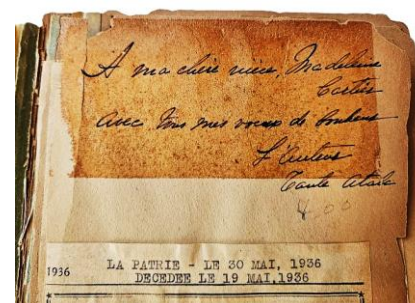 A ma chère nièce, Madeleine
Cartier
avec tous mes voeux de bonheur
L'auteur
Tante
1936
LA PATRIE - LE 30 MAI, 1936
DECEDEE LE 19 MAI, 1936